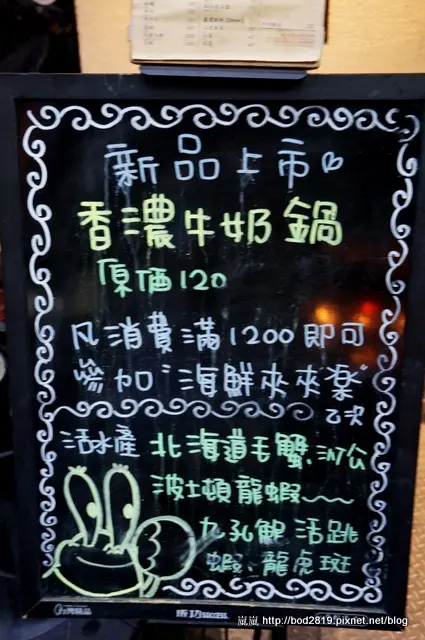 新品上市
香濃牛奶鍋
原価120
凡消費滿1200即可
參加"海鮮夾夾樂"
乙次
活水產 北海道毛蟹、沙公
波士頓龍蝦
九孔鮑 活跳
蝦、龍虎斑
成功
嵐嵐 http://bod2819.pixnet.net/blog